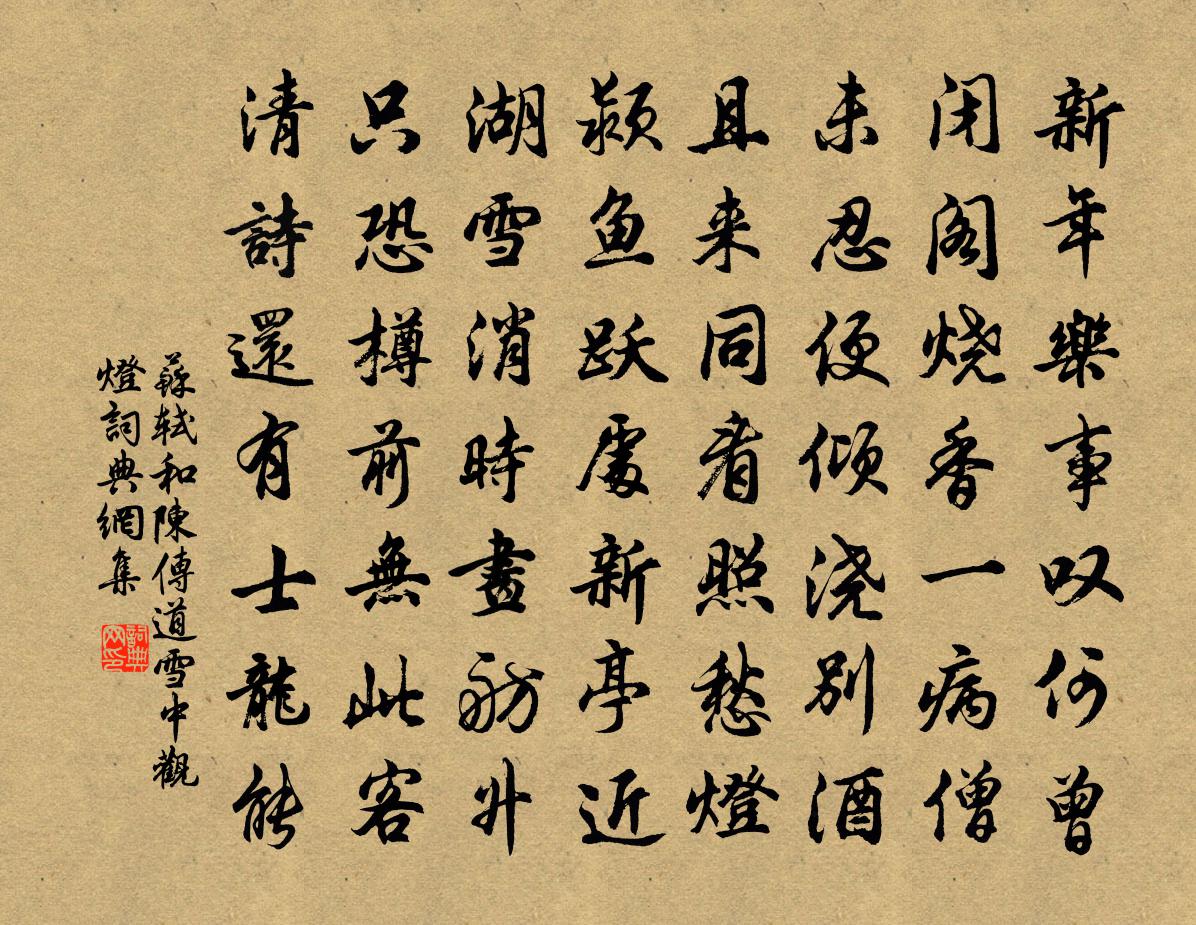 新年樂事叹何曾
闭阁烧香一病僧
未忍便倾浇別酒
且来同看照愁燈
颍鱼跃處新亭近
湖雪消時畫舫升
只恐樽前無此客
清詩還有士龍能
蘇軾和陳傳道雪中觀
燈詞典網集
詞典网印